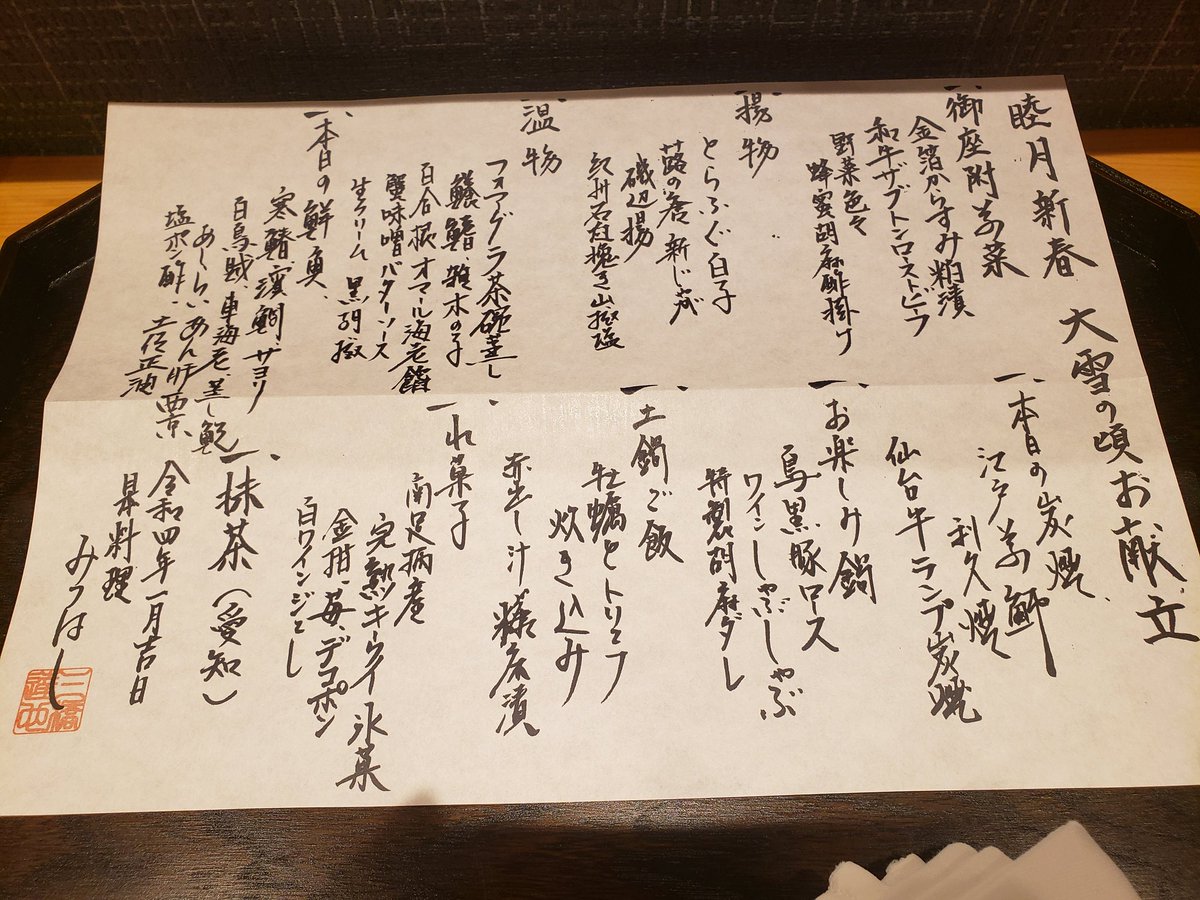 睦月新春 大雪の頃お献立
一、御座附前菜
金箔からすみ粕漬
和牛ザブトンローストビーフ
野菜色々
蜂蜜胡麻酢掛け
一、揚物
とらふぐ白子
蕗の薹 新じゃが
磯辺揚
紀州石臼挽き山椒塩
一、温物
フォアグラ茶碗蒸し
鱶鰭、雑木の子
百合根 オマール海老餡
蟹味噌バターソース
生クリーム 黒胡椒
一、本日の鮮魚、
寒鰆、濱鯛、サヨリ
白烏賊、車海老、蒸し鮑
あしらい あん肝
塩ポン酢、土佐正油
一、本日の炭焼、
江戸前鰤
利久焼
仙台牛ランプ炭焼
一、お楽しみ鍋
黒豚ロース
ワインしゃぶしゃぶ
特製胡麻ダレ
一、土鍋ご飯
牡蠣とトリュフ
炊き込み
赤出し汁 糠床漬
一、水菓子
南足柄産
完熟キーウイ氷菓
金柑、苺、デコポン
白ワインジュレ
一、抹茶（愛知）
令和四年一月吉日
日本料理
みつはし